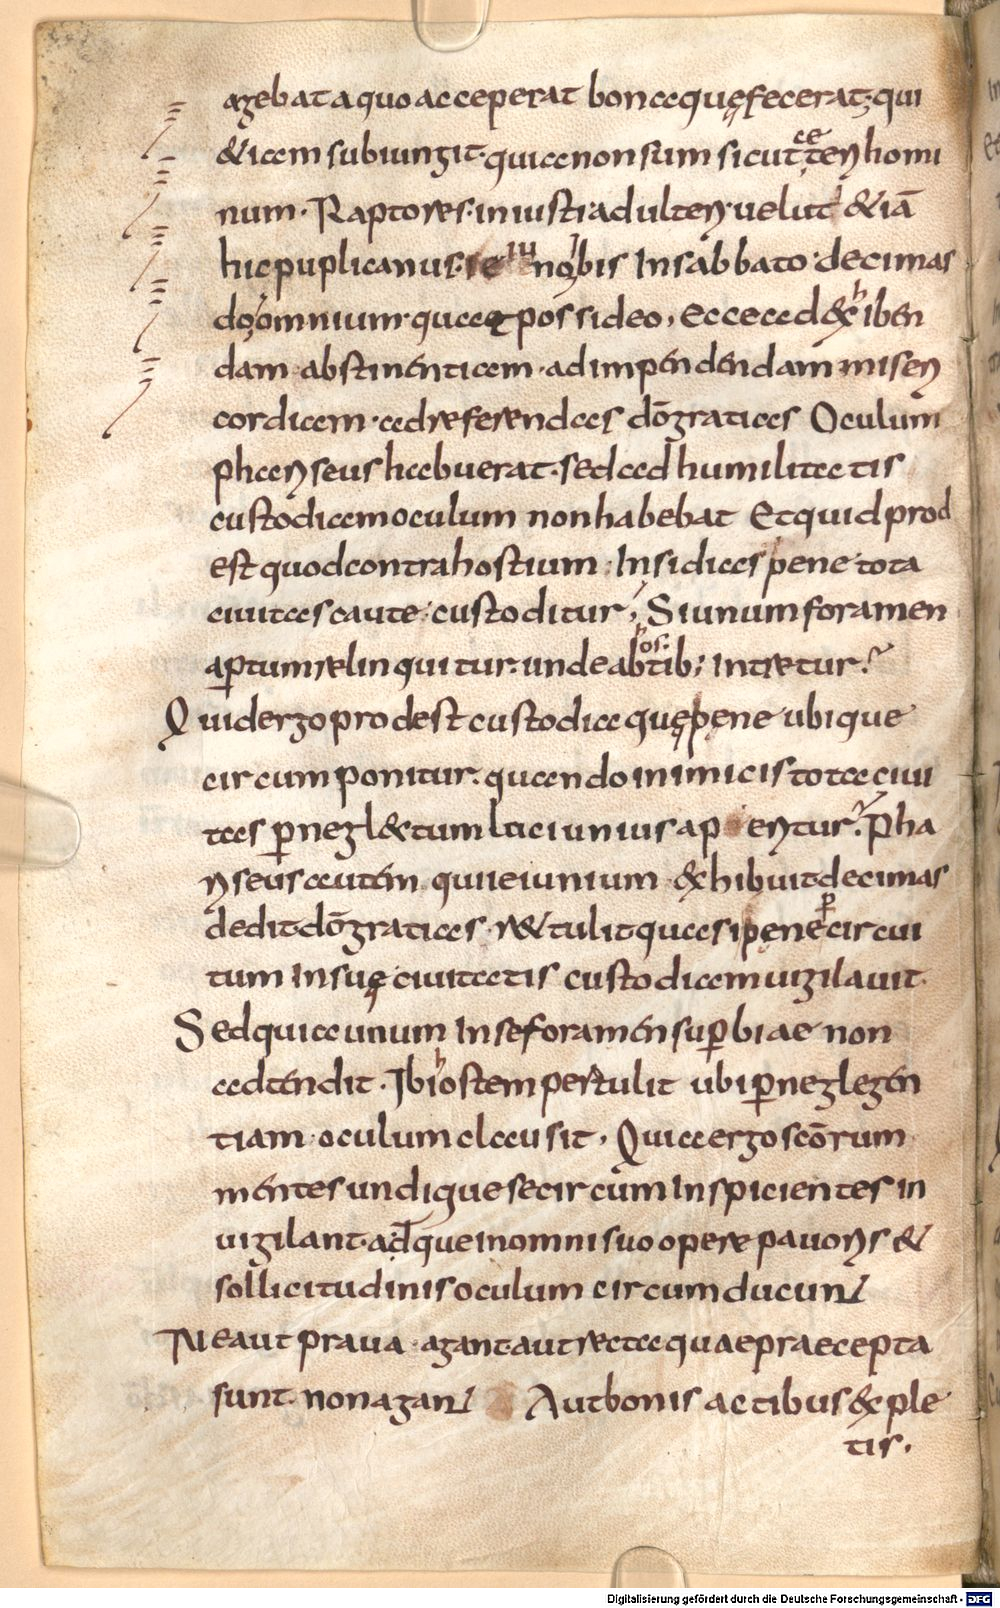 agebat a quo acceperat bona quę fecerat; qui
& iam subiungit. quia non sum sicut ceteri homi
num. Raptores. iniusti adulteri. uelut & iā
hic puplicanus. ieiunobis In sabbato. decimas
do omnium quae possideo, Ecce ad exhiben
dam abstinentiam. ad impendendam miseri
cordiam. ad referendas dō gratias Oculum
phariseus habuerat. sed ad humilitatis
custodiam oculum non habebat Et quid prod
est quod contra hostium. Insidias pene tota
ciuitas caute custoditur, Si unum foramen
aptum relinquitur. unde ab hostib; intretur.
Quid ergo prodest custodia quę pene ubique
circum ponitur. quando inimicis tota ciui
tas p negl&tum locī unius ap entur. Pha
riseus autem qui ieiunium exhibuit decimas
dedit dō gratias. r&tulit quasi pene p circui
tum In suę ciuitatis custodiam uigilauit.
Sed quia unum In se foramen supbiae non
adtendit. Ibi hostem pertulit ubi p neglegen
tiam oculum clausit, Quia ergo scōrum
mentes undique se circum Inspicientes in
uigilant. adque in omni suo opere pauoris &
sollicitudinis oculum circum ducunt
Ne aut praua agant. aut recta quae praecepta
sunt non agant Aut bonis actibus exple
tis.
Digitalisierung gefördert durch die Deutsche Forschungsgemeinschaft - DFG